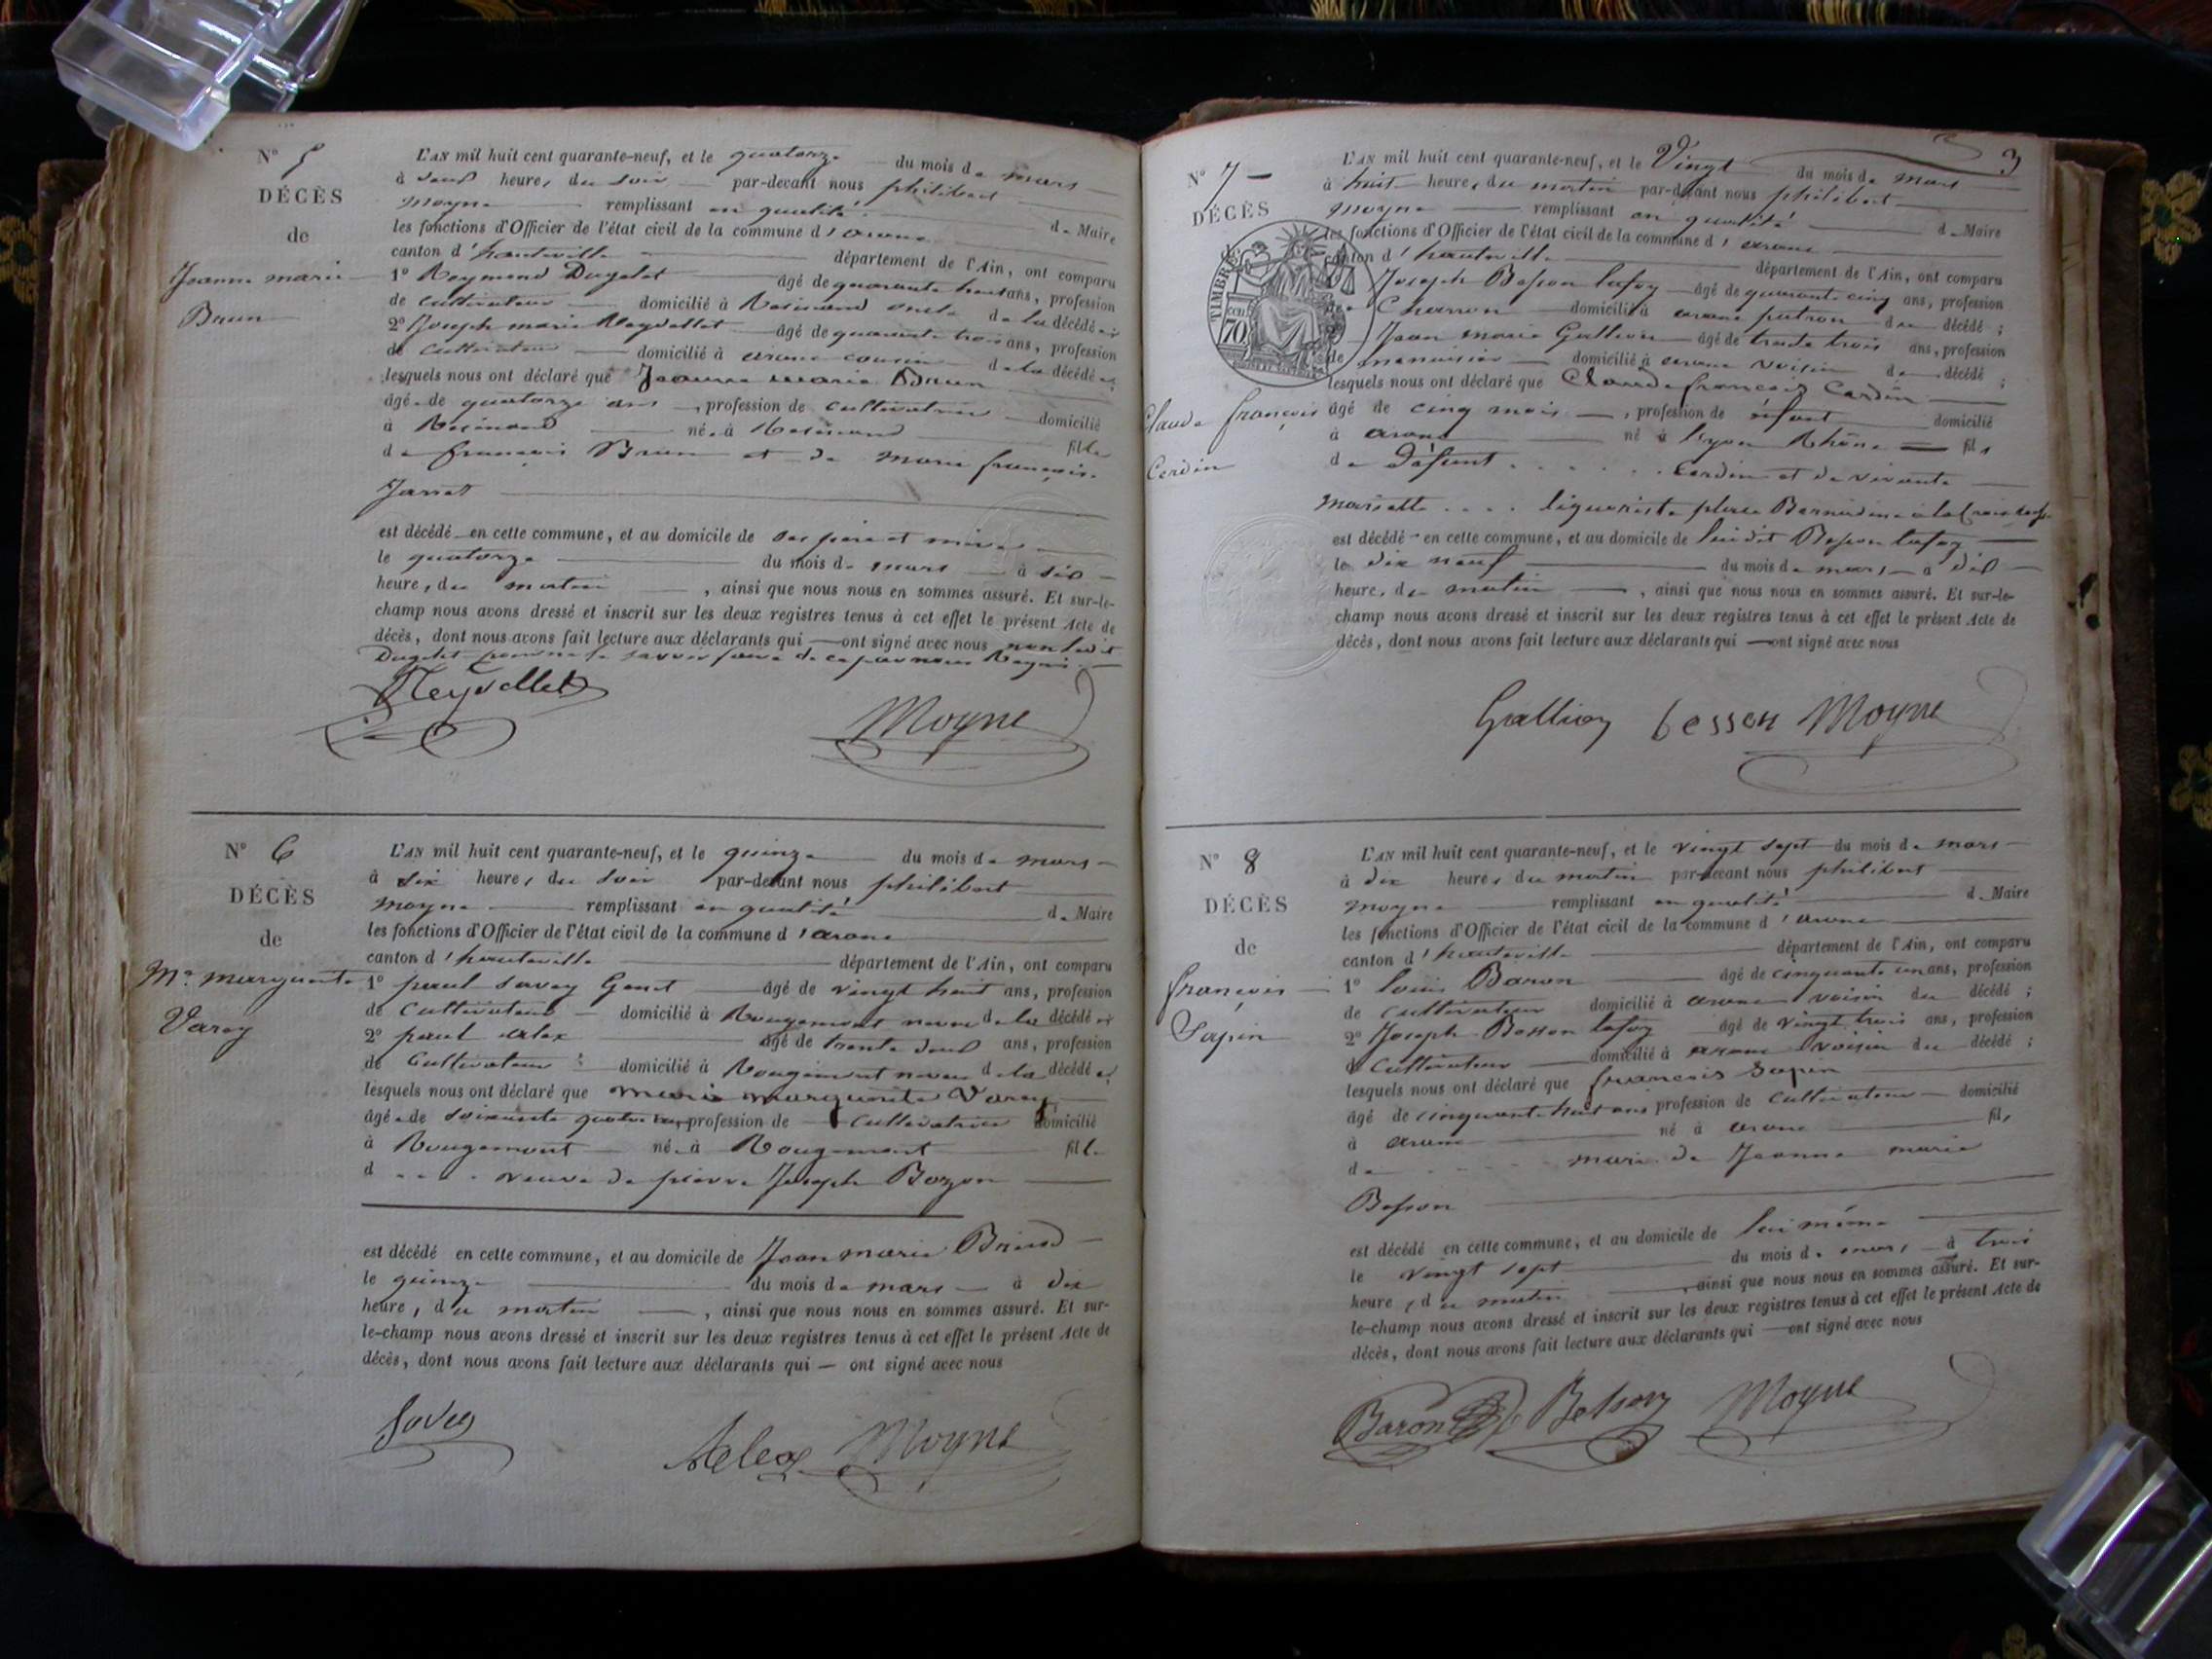 N° 5
DÉCÈS
de
Jeanne marie
Brun
L'AN mil huit cent quarante-neuf, et le quatorze du mois de mars
à deux heures du soir par-devant nous philibert
Moyne remplissant en qualité de Maire
les fonctions d'Officier de l'état civil de la commune d'arane
canton d'hauteville département de l'Ain, ont comparu
1° Reymond Dugelet âgé de quarante huit ans, profession
de cultivateur domicilié à Resinand oncle de la décédée;
2° Joseph marie Reydellet âgé de quarante trois ans, profession
de cultivateur domicilié à arane cousin de la décédée;
lesquels nous ont déclaré que Jeanne marie Brun
âgée de quatorze ans, profession de cultivatrice domicilié
à Resinand née à Resinand fille
de françois Brun et de marie françoise
Jarret
est décédé en cette commune, et au domicile de ses père et mère
le quatorze du mois de mars à six
heures du matin, ainsi que nous nous en sommes assuré. Et sur-le-
champ nous avons dressé et inscrit sur les deux registres tenus à cet effet le présent Acte de
décès, dont nous avons fait lecture aux déclarants qui — ont signé avec nous non ledit
Dugelet pour ne le savoir faire de ce par nous Requis
Reydellet Moyne
N° 6
DÉCÈS
de
Me marguerite
Varey
L'AN mil huit cent quarante-neuf, et le quinze du mois de mars
à six heures du soir par-devant nous philibert
moyne remplissant en qualité de Maire
les fonctions d'Officier de l'état civil de la commune d'arane
canton d'hauteville département de l'Ain, ont comparu
1° paul savey Genet âgé de vingt huit ans, profession
de cultivateur domicilié à Rougemont neveu de la décédée;
2° paul alex âgé de trente deux ans, profession
de cultivateur domicilié à Rougemont neveu de la décédée;
lesquels nous ont déclaré que marie marguerite Varey
âgée de soixante quatre ans, profession de cultivatrice domicilié
à Rougemont née à Rougemont fille
d . . . . veuve de pierre Joseph Bozon
est décédé en cette commune, et au domicile de Jean marie
le quinze du mois de mars à dix
heures, du matin, ainsi que nous nous en sommes assuré. Et sur-
le-champ nous avons dressé et inscrit sur les deux registres tenus à cet effet le présent Acte de
décès, dont nous avons fait lecture aux déclarants qui — ont signé avec nous
Savey Alex Moyne
3
N° 7
DÉCÈS
de
TIMBRE
70
Claude françois
Cerdin
L'AN mil huit cent quarante-neuf, et le Vingt du mois de mars
à huit heures du matin par-devant nous philibert
moyne remplissant en qualité de Maire
les fonctions d'Officier de l'état civil de la commune d'arane
canton d'hauteville département de l'Ain, ont comparu
Joseph Besson lafoy âgé de quarante cinq ans, profession
de Charron domicilié à arane patron du décédé;
2° Jean marie Gallion âgé de trente trois ans, profession
de menuisier domicilié à arane voisin de décédé;
lesquels nous ont déclaré que Claude françois Cardin
âgé de cinq mois, profession de enfant domicilié
à arane né à Lyon Rhône fils
de Défunt . . . . . . cerdin et de vivante
Mariette . . . . liquoriste place Bernardine à la Croix rousse
est décédé en cette commune, et au domicile de lui dit Besson lafoy
le dix neuf du mois de mars à dix
heures, du matin, ainsi que nous nous en sommes assuré. Et sur-le-
champ nous avons dressé et inscrit sur les deux registres tenus à cet effet le présent Acte de
décès, dont nous avons fait lecture aux déclarants qui — ont signé avec nous
Gallion besson Moyne
N° 8
DÉCÈS
de
françois
Sapin
L'AN mil huit cent quarante-neuf, et le vingt sept du mois de mars
à dix heures du matin par-devant nous philibert
moyne remplissant en qualité de Maire
les fonctions d'Officier de l'état civil de la commune d'arane
canton d'hauteville département de l'Ain, ont comparu
1° louis Baron âgé de cinquante un ans, profession
de cultivateur domicilié à arane voisin du décédé;
2° Joseph Besson lafoy âgé de vingt trois ans, profession
de Cultivateur domicilié à arane voisin du décédé;
lesquels nous ont déclaré que françois Sapin
âgé de cinquante huit ans profession de cultivateur domicilié
à arane né à arane fils
de . . . . . . mari de Jeanne marie
Besson
est décédé en cette commune, et au domicile de lui même
le vingt sept du mois de mars à trois
heures, du matin, ainsi que nous nous en sommes assuré. Et sur-
le-champ nous avons dressé et inscrit sur les deux registres tenus à cet effet le présent Acte de
décès, dont nous avons fait lecture aux déclarants qui — ont signé avec nous
Baron Besson Moyne